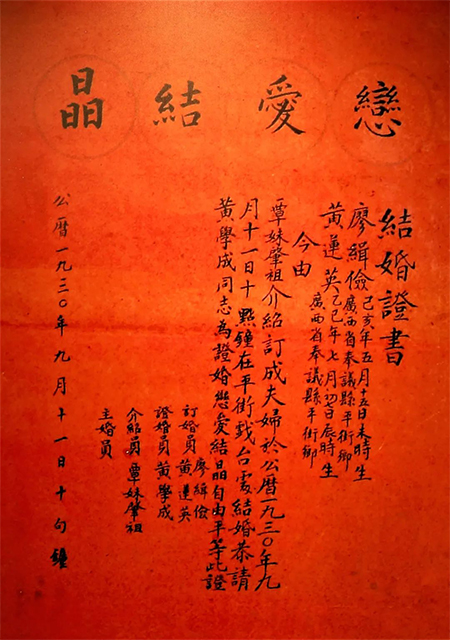 戀愛結晶
結婚證書
廖緝儉己亥年五月十五日未時生
廣西省奉議縣平街鄉
黃蓮英乙巳年七月初日辰時生
廣西省奉議縣平街鄉
今由
覃妹肇祖介紹訂成夫婦於公曆一九三〇年九
月十一日十點鐘在平街戲台處結婚恭請
黃學成同志為證婚戀愛結晶自由平等此證
訂婚員 廖緝儉
黃蓮英
證婚員黃學成
介紹員覃妹肇祖
主婚員
公曆一九三〇年九月十一日十句鐘